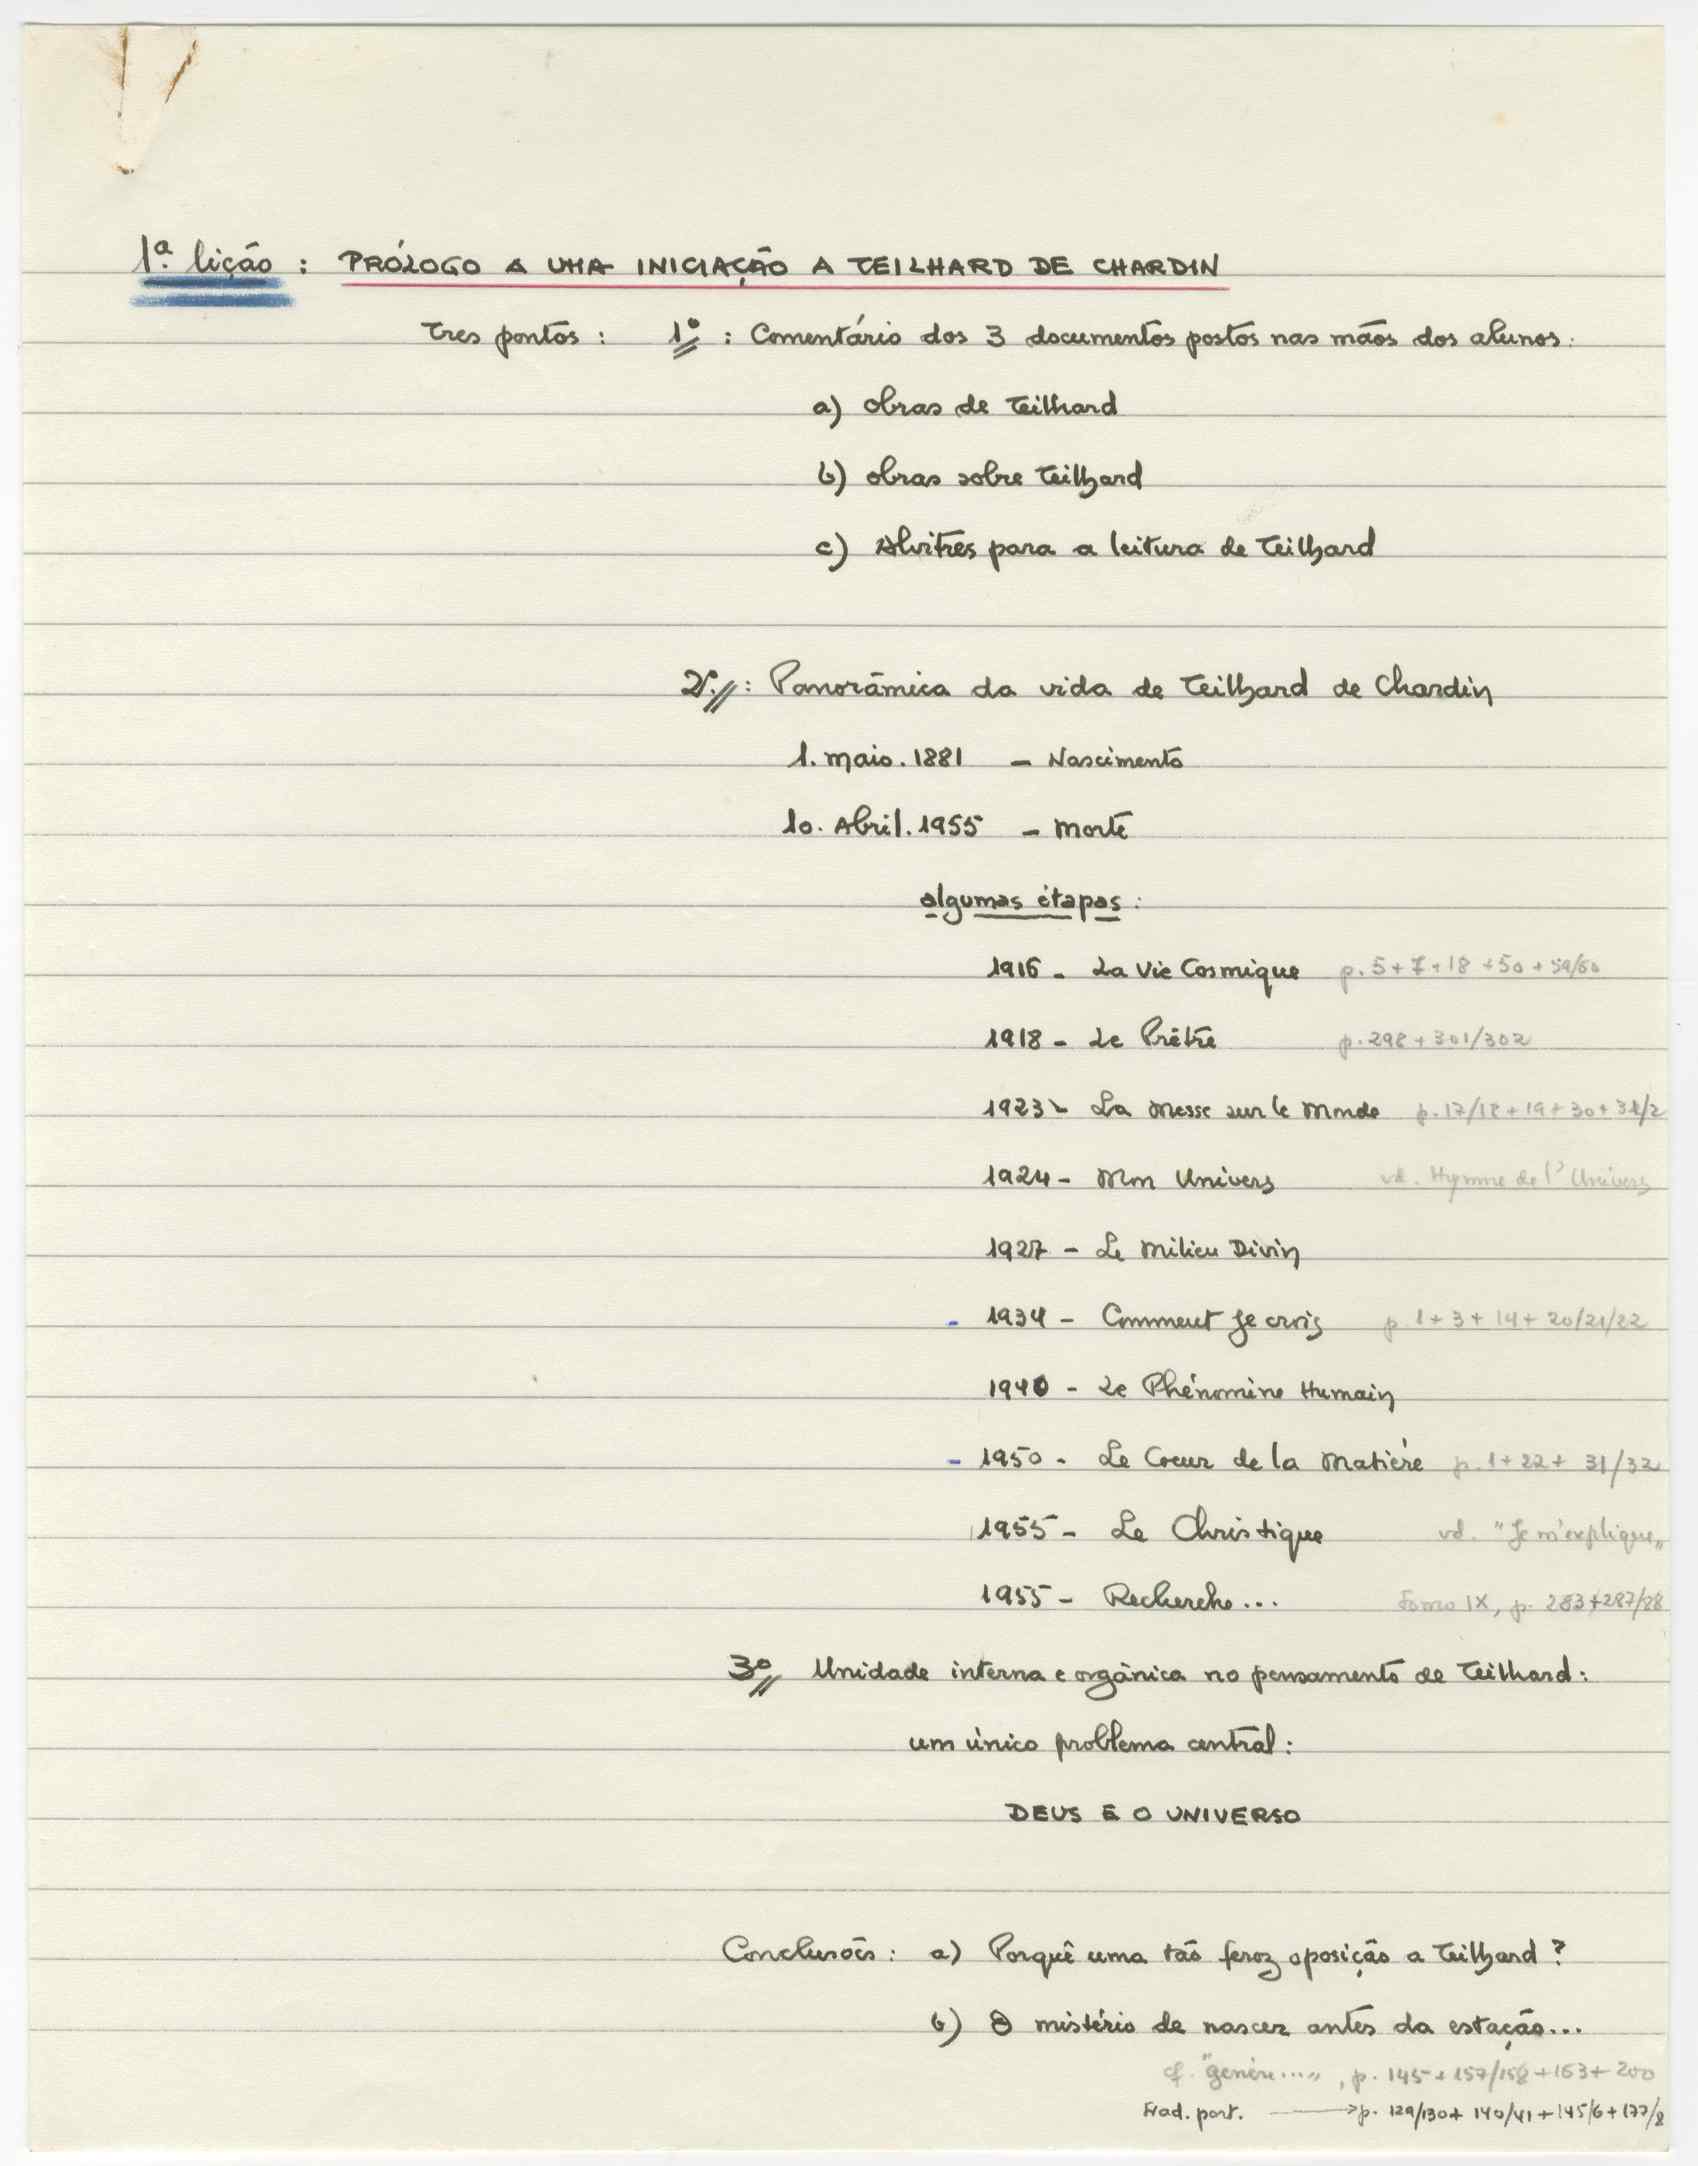 1ª. lição : PRÓLOGO A UMA INICIAÇÃO A TEILHARD DE CHARDIN
Tres pontos : 1º : Comentário dos 3 documentos postos nas mãos dos alunos:
a) obras de Teilhard
b) obras sobre Teilhard
c) Alvitres para a leitura de Teilhard
2º. : Panorâmica da vida de Teilhard de Chardin
1. maio. 1881 - Nascimento
10. Abril. 1955 - morte
algumas étapas :
1916 - La Vie Cosmique p. 5 + 7 + 18 + 50 + 59/60
1918 - Le Prêtre p. 298 + 301/302
1923 - La messe sur le monde p. 17/18 + 19 + 30 + 31/2
1924 - Mon Univers vd. Hymne de l'Univers
1927 - Le milieu Divin
- 1934 - Comment Je crois p. 1 + 3 + 14 + 20/21/22
1940 - Le Phénomène Humain
- 1950 - Le Coeur de la matière p. 1 + 22 + 31/32
1955 - Le Christique vd. "Je m'explique"
1955 - Recherche... Tomo IX, p. 283 + 287/88
3º Unidade interna e orgânica no pensamento de Teilhard :
um único problema central :
DEUS E O UNIVERSO
Conclusões : a) Porquê uma tão feroz oposição a Teilhard ?
b) O mistério de nascer antes da estação...
cf. "genèse...", p. 145 + 157/158 + 163 + 200
trad. port. → p. 129/130 + 140/41 + 145/6 + 177/8